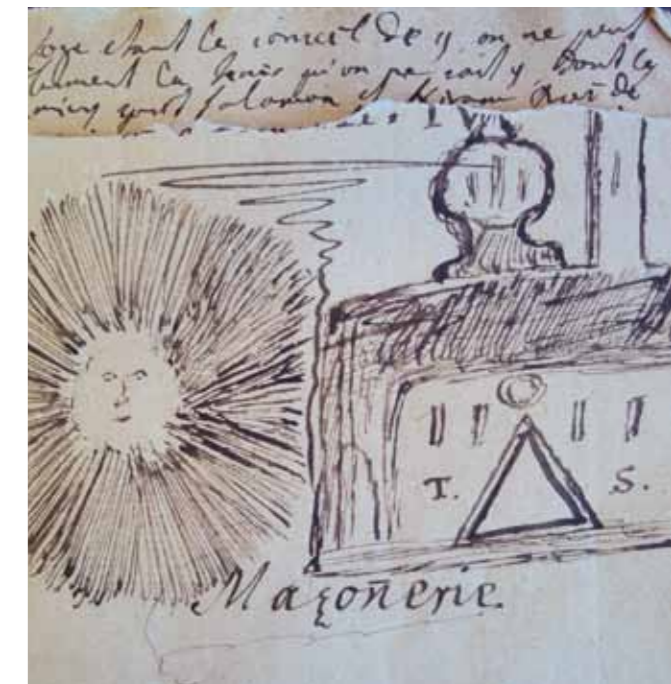 loge etant le conseil de y on ne peut
les qu'on ne soit y dont le
Salomon et hiram Roi de
T. S.
Maçoñerie.